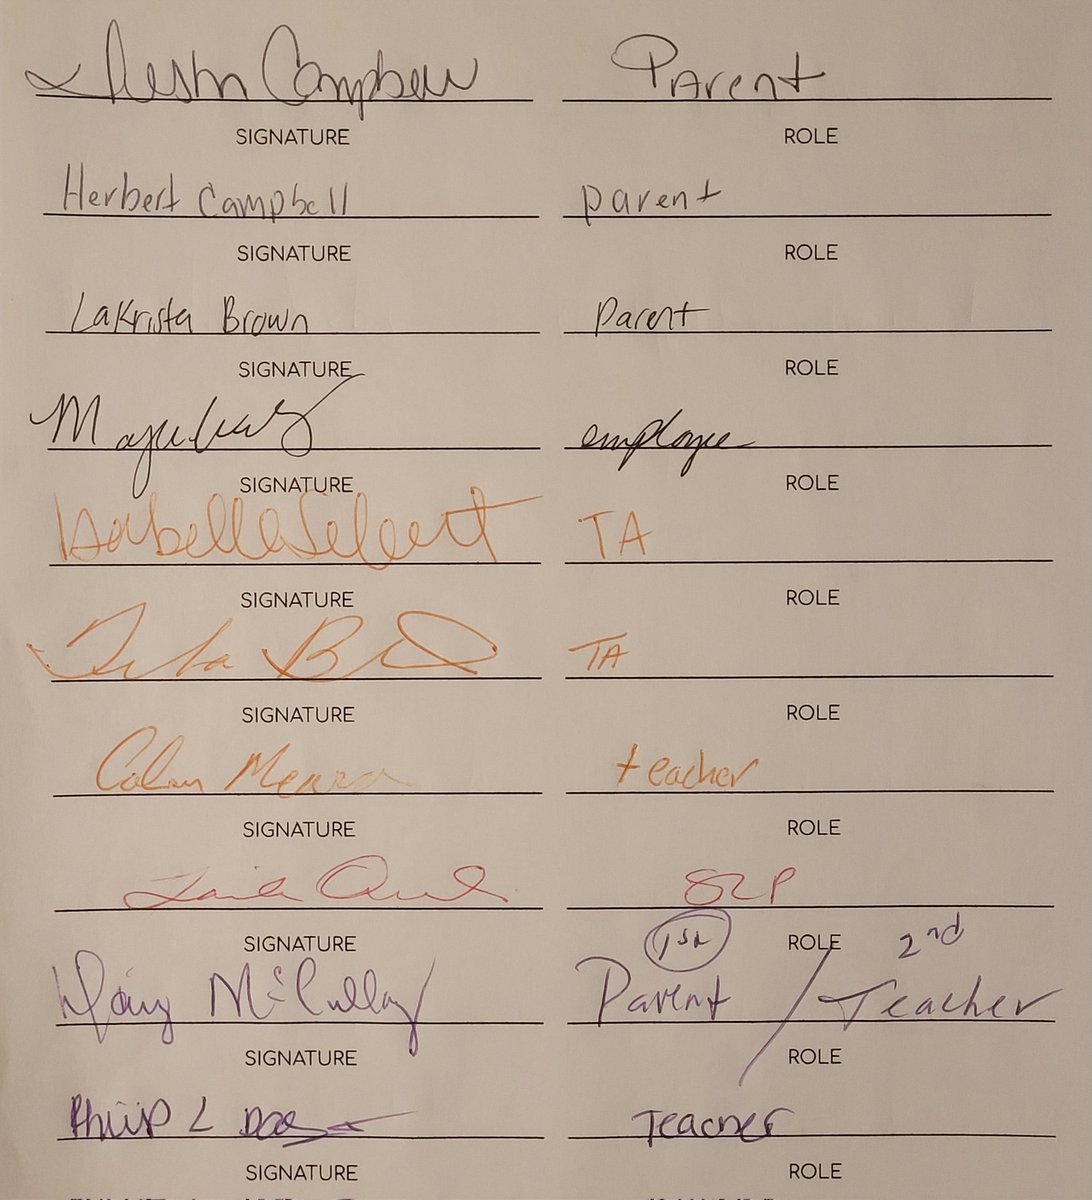 Campbell Parent
SIGNATURE ROLE
Herbert Campbell parent
SIGNATURE ROLE
LaKrista Brown Parent
SIGNATURE ROLE
employee
SIGNATURE ROLE
Isabelle TA
SIGNATURE ROLE
TA
SIGNATURE ROLE
teacher
SIGNATURE ROLE
SLP
SIGNATURE 1st ROLE 2nd
McCullay Parent / Teacher
SIGNATURE ROLE
Philip L Teacher
SIGNATURE ROLE